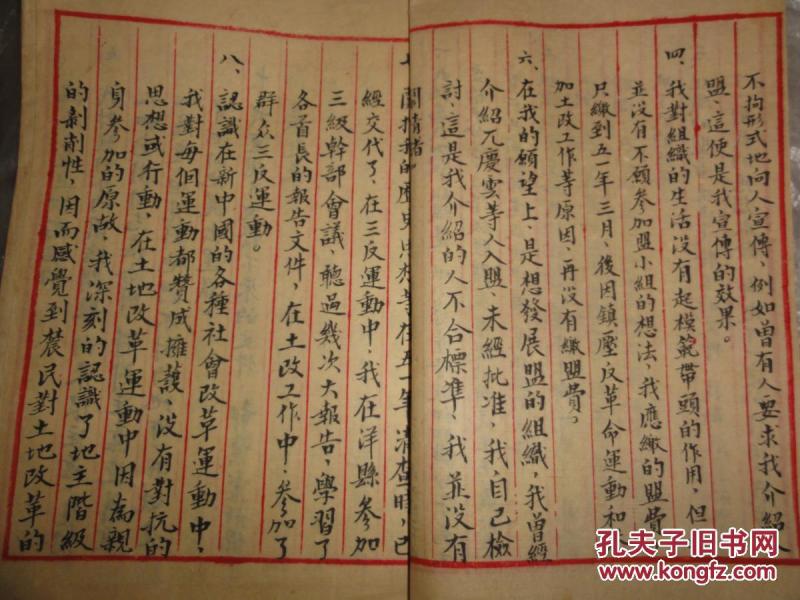 不拘形式地向人宣傳，例如曾有人要求我介紹入
盟，這便是我宣傳的效果。
四、我對組織的生活沒有起模範帶頭的作用，但
並沒有不願參加盟小組的想法，我應繳的盟費
只繳到五一年三月，後因鎮壓反革命運動和
加土改工作等原因，再沒有繳盟費。
六、在我的願望上，是想發展盟的組織，我曾經
介紹亢慶雲等人入盟，未經批准，我自己檢
討，這是我介紹的人不合標準，我並沒有
七、關
的歷史思想等在五一年清查時，已
經交代了，在三反運動中，我在洋縣參加
三級幹部會議，聽過幾次大報告，學習了
各首長的報告文件，在土改工作中，參加了
群众三反運動。
八、認識在新中國的各種社會改革運動中，
我對每個運動都贊成擁護，没有對抗的
思想或行動，在土地改革運動中因為親
身參加的原故，我深刻的認識了地主階級
的剝削性，因而感覺到農民對土地改革的
孔夫子旧书网
www.kongfz.com